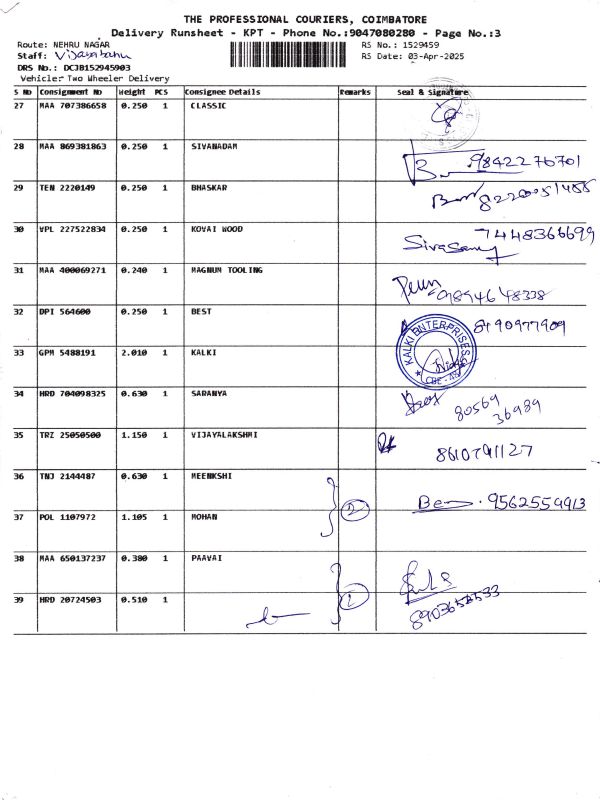 THE PROFESSIONAL COURIERS, COIMBATORE
Delivery Runsheet - KPT - Phone No.:9047080280 - Page No.:3
Route: NEHRU NAGAR RS No.: 1529459
Staff: RS Date: 03-Apr-2025
DRS No.: DCJB152945903
Vehicle: Two Wheeler Delivery
S No Consignment No Weight PCS Consignee Details Remarks Seal & Signature
27 MAA 707386658 0.250 1 CLASSIC
28 MAA 869381863 0.250 1 SIVANADAM
9842276701
29 TEN 2220149 0.250 1 BHASKAR
8220051488
30 VPL 227522834 0.250 1 KOVAI WOOD 7448366699
31 MAA 400069271 0.240 1 MAGNUM TOOLING
9894648338
32 DPI 564600 0.250 1 BEST 8190977909
33 GPM 5488191 2.010 1 KALKI KALKI ENTERPRISES
34 HRD 704098325 0.630 1 SARANYA
80569
36989
35 TRZ 25050500 1.150 1 VIJAYALAKSHMI
8610791127
36 TNJ 2144487 0.630 1 MEENKSHI
9562559913
37 POL 1107972 1.105 1 MOHAN 2
38 MAA 650137237 0.380 1 PAAVAI
39 HRD 20724503 0.510 1 1